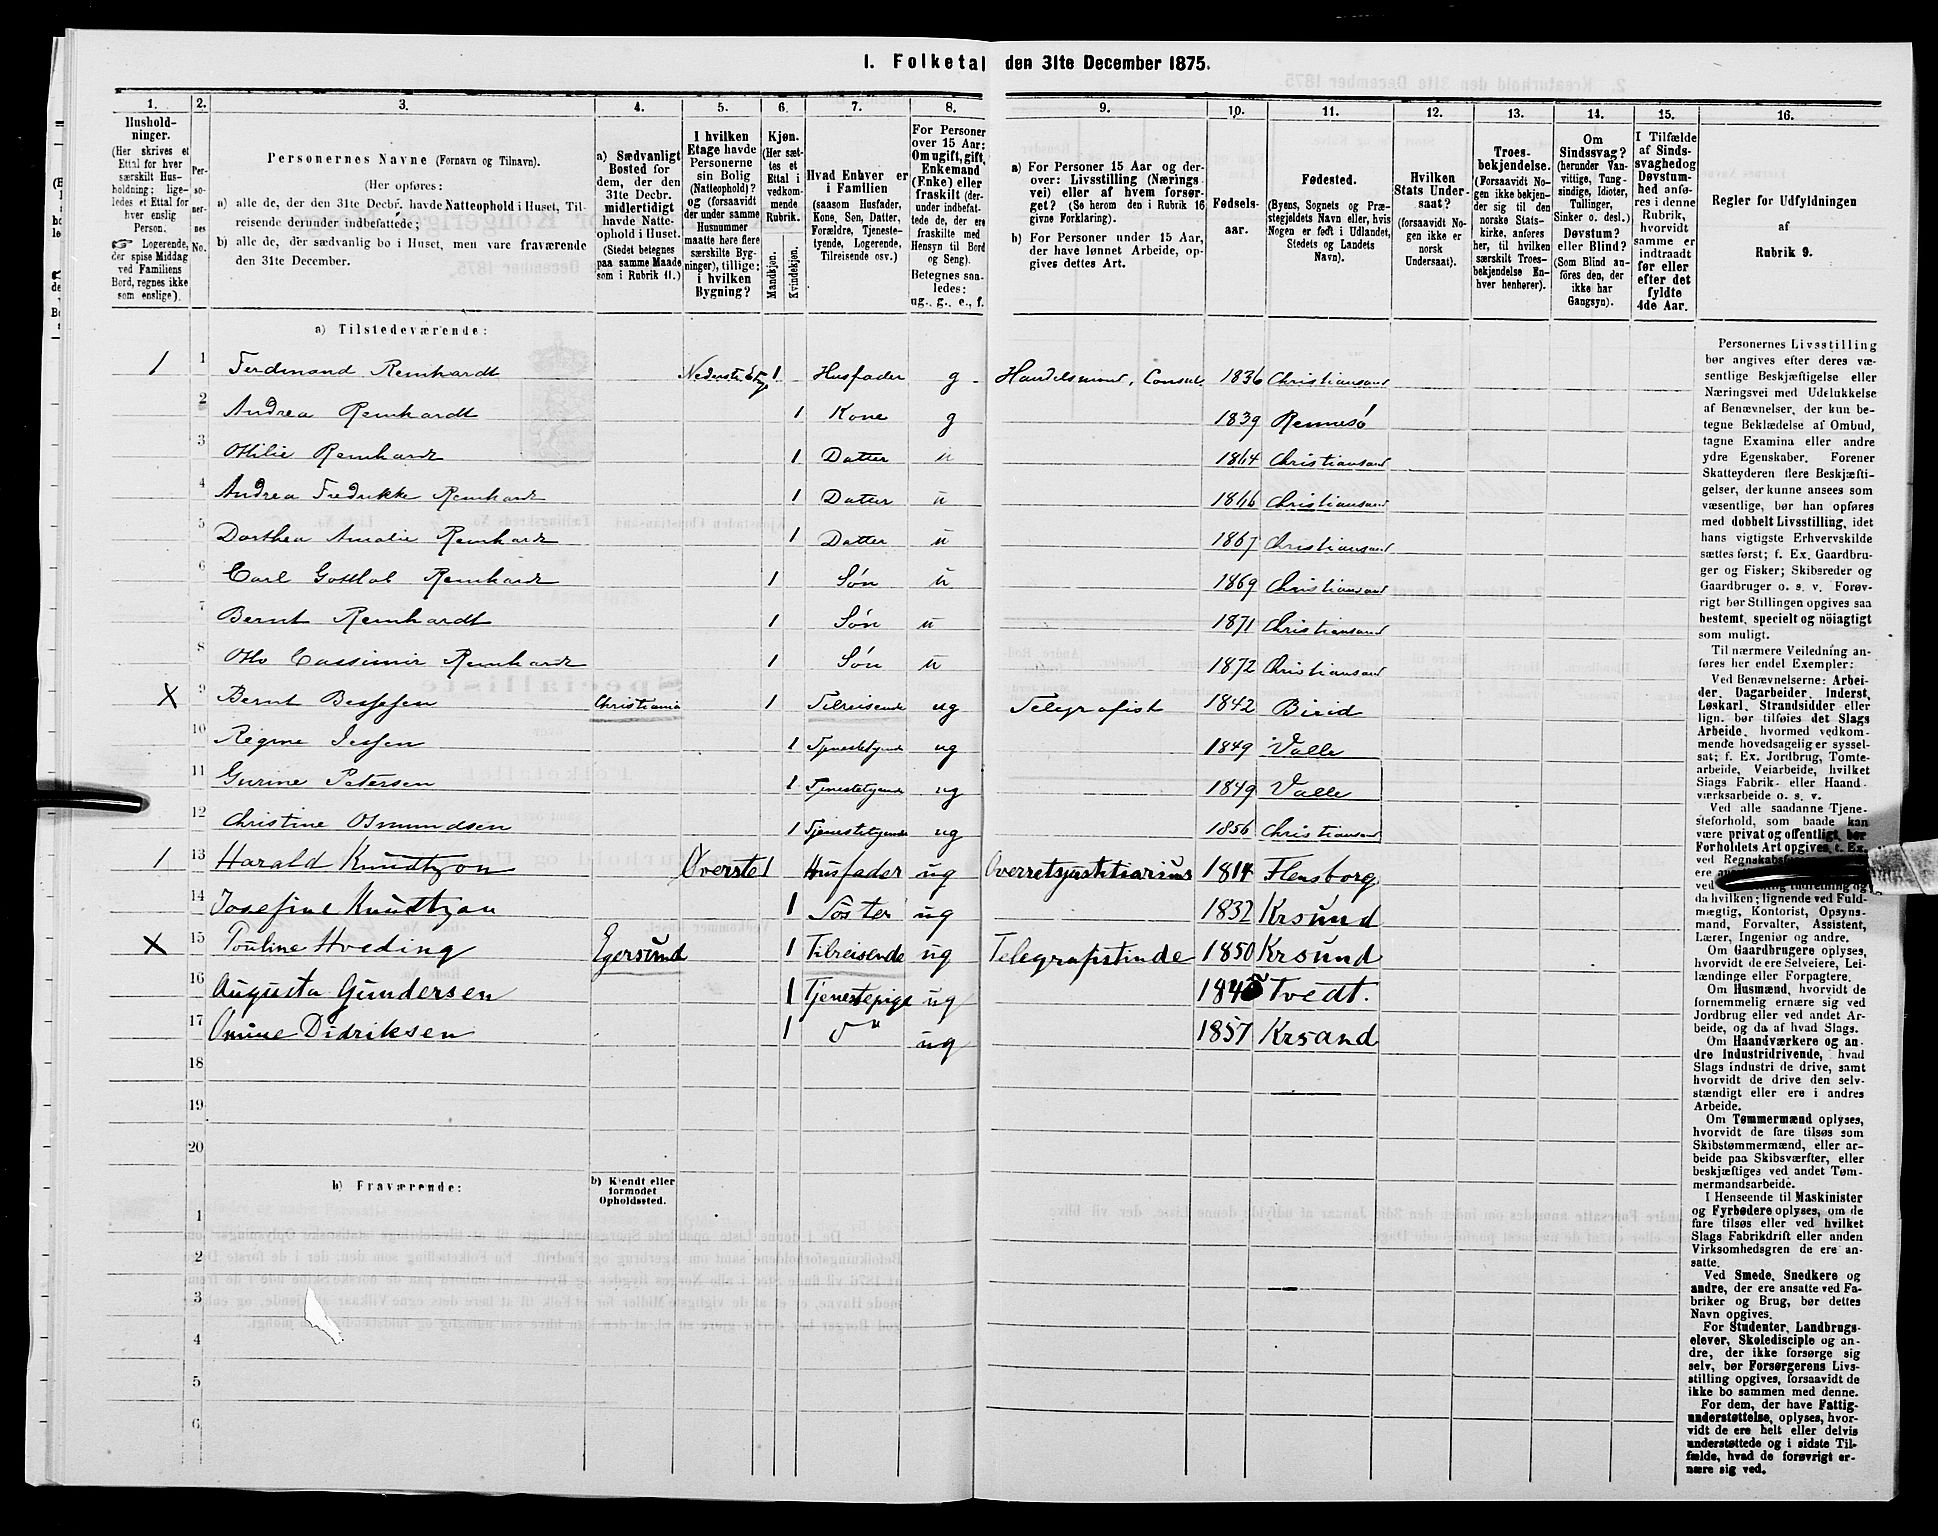 I. Folketal den 31te December 1875.
1. 2. 3. 4. 5. 6. 7. 8. 9. 10. 11. 12. 13. 14. 15. 16.
Hushold-
ninger.
(Her skrives et
Ettal for hver
særskilt Hus-
holdning; lige-
ledes et Ettal for
hver enslig
Person.
☞ Logerende,
der spise Middag
ved Familiens
Bord, regnes ikke
som enslige).
Per-
so-
ner-
nes
No.
Personernes Navne (Fornavn og Tilnavn).
(Her opføres:
a) alle de, der den 31te Decbr. havde Natteophold i Huset, Til-
reisende derunder indbefattede;
b) alle de, der sædvanlig bo i Huset, men vare fraværende
den 31te December.
a) Sædvanligt
Bosted for
dem, der den
31te Decbr.
midlertidigt
havde Natte-
ophold i Huset.
(Stedet betegnes
paa samme Maade
som i Rubrik 11.)
I hvilken
Etage havde
Personerne
sin Bolig
(Natteophold)?
og (forsaavidt
der under samme
Husnummer
maatte høre flere
særskilte Byg-
ninger), tillige:
i hvilken
Bygning?
Kjøn.
(Her sæt-
tes et
Ettal i
vedkom-
mende
Rubrik.
Mandkjøn.
Kvindekjøn.
Hvad Enhver er
i Familien
(saasom Husfader,
Kone, Søn, Datter,
Forældre, Tjeneste-
tyende, Logerende,
Tilreisende osv.)
For Personer
over 15 Aar:
Om ugift, gift,
Enkemand
(Enke) eller
fraskilt (der-
under indbefat-
tede de, der ere
fraskilte med
Hensyn til Bord
og Seng).
Betegnes saa-
ledes:
ug., g., e., f.
a) For Personer 15 Aar og der-
over: Livsstilling (Nærings-
vei) eller af hvem forsør-
get? (Se herom den i Rubrik 16
givne Forklaring).
b) For Personer under 15 Aar,
der have lønnet Arbeide, op-
gives dettes Art.
Fødsels-
aar.
Fødested.
(Byens, Sognets og Præ-
stegjeldets Navn eller, hvis
Nogen er født i Udlandet,
Stedets og Landets
Navn).
Hvilken
Stats Under-
saat?
(forsaavidt No-
gen ikke er
norsk
Undersaat).
Troes-
bekjendelse.
(Forsaavidt No-
gen ikke bekjen-
der sig til den
norske Stats-
kirke, anføres
her, til hvilken
særskilt Troes-
bekjendelse En-
hver henhører).
Om
Sindssvag?
(herunder Van-
vittige, Tung-
sindige, Idioter,
Tullinger,
Sinker o. desl.)
Døvstum?
eller Blind?
(Som Blind an-
føres den, der
ikke har
Gangsyn).
I Tilfælde
af Sinds-
svaghed og
Døvstum-
hed anfø-
res i denne
Rubrik,
hvorvidt
samme er
indtraadt
før eller
efter det
fyldte
4de Aar.
Regler for Udfyldningen
af
Rubrik 9.
a) Tilstedeværende:
1 1 Ferdinand Reinhardt Nederste Etage 1 Husfader g Handelsmand, Consul 1836 Christiansand
2 Andrea Reinhardt 1 Kone g 1839 Rennesö
3 Otilie Reinhardt 1 Datter u 1864 Christiansand
4 Andrea Fredrikke Reinhardt 1 Datter u 1866 Christiansand
5 Dorthea Amalie Reinhardt 1 Datter u 1867 Christiansand
6 Carl Gottlob Reinhardt 1 Søn u 1869 Christiansand
7 Bernt Reinhardt 1 Søn u 1871 Christiansand
8 Otto Cassimir Reinhardt 1 Søn u 1872 Christiansand
X 9 Bernt Bessesen Christiania 1 Tilreisende ug Telegrafist 1842 Birid
10 Regine Jessen 1 Tjenestetyende ug 1849 Valle
11 Gurine Petersen 1 Tjenestetyende ug 1849 Valle
12 Christine Osmundsen 1 Tjenestetyende ug 1856 Christiansand
1 13 Harald Knudtzon Øverste 1 Husfader ug Overretsjustitiarius 1814 Flensborg
14 Josefine Knudtzon 1 Søster ug 1832 Krsund
X 15 Pouline Hveding Egersund 1 Tilreisende ug Telegrafistinde 1850 Krsund
16 Augusta Gundersen 1 Tjenestepige ug Tvedt.
17 Omine Didriksen 1 ug 1857 Krsand
18
19
20
b) Fraværende:
b) Kjendt eller
formodet
Opholdssted.
1
2
3
4
5
6
Personernes Livsstilling
bør angives efter deres væ-
sentlige Beskjæftigelse eller
Næringsvei med Udelukkelse
af Benævnelser, der kun be-
tegne Beklædelse af Ombud,
tagne Examina eller andre
ydre Egenskaber. Forener
Skatteyderen flere Beskjæfti-
gelser, der kunne ansees som
væsentlige, bør han opføres
med dobbelt Livsstilling, idet
hans vigtigste Erhvervskilde
sættes først; f. Ex. Gaardbru-
ger og Fisker; Skibsreder og
Gaardbruger o. s. v. Forøv-
rigt bør Stillingen opgives saa
bestemt, specielt og nöiagtigt
som muligt.
Til nærmere Veiledning an-
føres her endel Exempler:
Ved Benævnelserne: Arbei-
der, Dagarbeider, Inderst,
Løskarl, Strandsidder eller
lign. bør tilføies det Slags
Arbeide, hvormed vedkom-
mende hovedsagelig er syssel-
sat; f. Ex. Jordbrug, Tomte-
arbeide, Veiarbeide, hvilket
Slags Fabrik- eller Haand-
værksarbeide o. s. v.
Ved alle saadanne Tjene-
steforhold, som baade kan
være privat og offentligt, bør
Forholdets Art opgives, t. Ex.
ved
ere
ved
da hvilken; lignende ved Fuld-
mægtig, Kontorist, Opsyns-
mand, Forvalter, Assistent,
Lærer, Ingeniør og andre.
Om Gaardbrugere oplyses,
hvorvidt de ere Selveiere, Lei-
lændinge eller Forpagtere.
Om Husmænd, hvorvidt de
fornemmelig ernære sig ved
Jordbrug eller ved andet Ar-
beide, og da af hvad Slags.
Om Haandværkere og an-
dre Industridrivende, hvad
Slags Industri de drive, samt
hvorvidt de drive den selv-
stændigt eller ere i andres
Arbeide.
Om Tømmermænd oplyses,
hvorvidt de fare tilsøs som
Skibstømmermænd, eller ar-
beide paa Skibsværfter, eller
beskjæftiges ved andet Tøm-
mermandsarbeide.
I Henseende til Maskinister
og Fyrbødere oplyses, om de
fare tilsøs eller ved hvilket
Slags Fabrikdrift eller anden
Virksomhedsgren de ere an-
satte.
Ved Smede, Snedkere og
andre, der ere ansatte ved Fa-
briker og Brug, bør dettes
Navn opgives.
For Studenter, Landbrugs-
elever, Skoledisciple og an-
dre, der ikke forsørge sig
selv, bør Forsørgerens Livs-
stilling opgives, forsaavidt de
ikke bo sammen med denne.
For dem, der have Fattig-
understøttelse, oplyses, hvor-
vidt de ere helt eller delvis
understøttede og i sidste Til-
fælde, hvad de forøvrigt er-
nære sig ved.